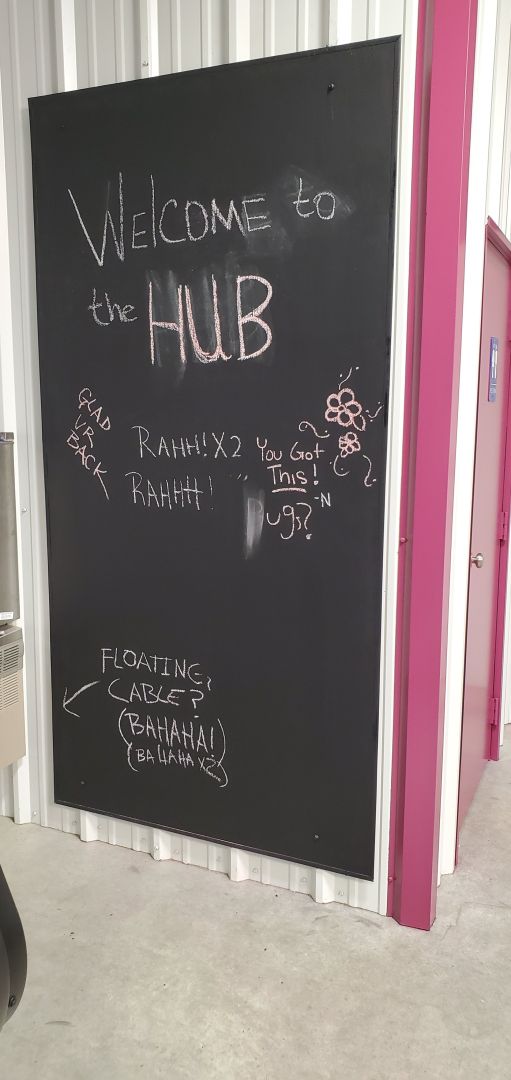 WELCOME to
the HUB
GLAD
UR
BACK
RAHH! X2
RAHHH!
You Got
This!
-N
ugs?
FLOATING,
CABLE?
(BAHAHA!)
(BAHAHA X2)